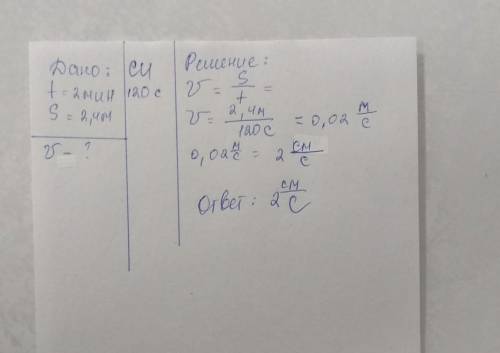 Дано:
t = 2 мин
S = 2,4 м
v - ?
СИ
120 с
Решение:
v = S/t =
v = 2,4 м/120 с = 0,02 м/с
0,02 м/с = 2 см/с
Ответ: 2 см/с